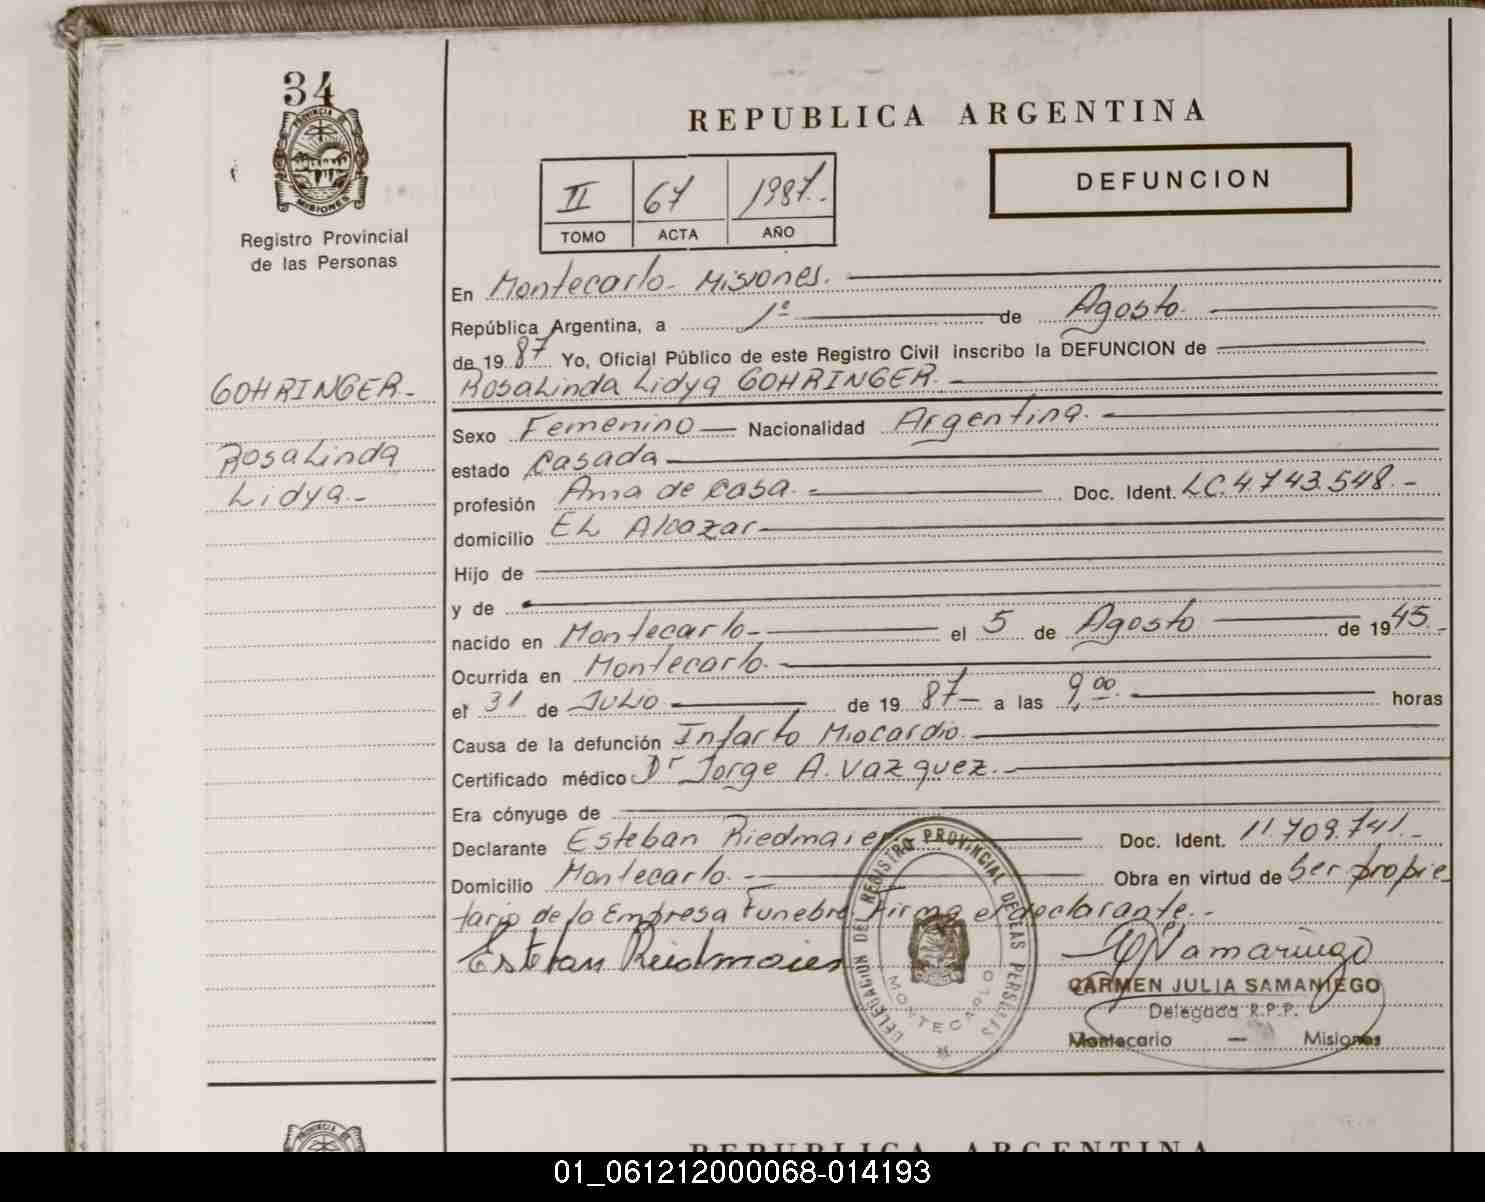 34
PROVINCIA DE
MISIONES
Registro Provincial
de las Personas
GOHRINGER.-
Rosalinda
Lidya.-
REPUBLICA ARGENTINA
II 67 1987.-
TOMO ACTA AÑO
DEFUNCION
En Montecarlo - Misiones.
República Argentina, a 1º de Agosto.
de 19 87 Yo, Oficial Público de este Registro Civil inscribo la DEFUNCION de
Rosalinda Lidya GOHRINGER.
Sexo Femenino Nacionalidad Argentina.
estado Casada
profesión Ama de casa.- Doc. Ident. LC.4743.548.-
domicilio EL Alcazar
Hijo de
y de
nacido en Montecarlo- el 5 de Agosto de 1945.-
Ocurrida en Montecarlo.
el 31 de Julio de 19 87- a las 9,00. horas
Causa de la defunción Infarto Miocardio.
Certificado médico Dr Jorge A. Vazquez.-
Era cónyuge de
Declarante Esteban Riedmaier Doc. Ident. 11.709.741.-
Domicilio Montecarlo.- Obra en virtud de Ser propie
tario de la Empresa Funebre. Firma el declarante.-
Esteban Riedmaier
DELEGACION DEL REGISTRO PROVINCIAL DE LAS PERSONAS
MONTECARLO
CARMEN JULIA SAMANIEGO
Delegada R.P.P.
Montecarlo — Misiones
REPUBLICA ARGENTINA
01_061212000068-014193